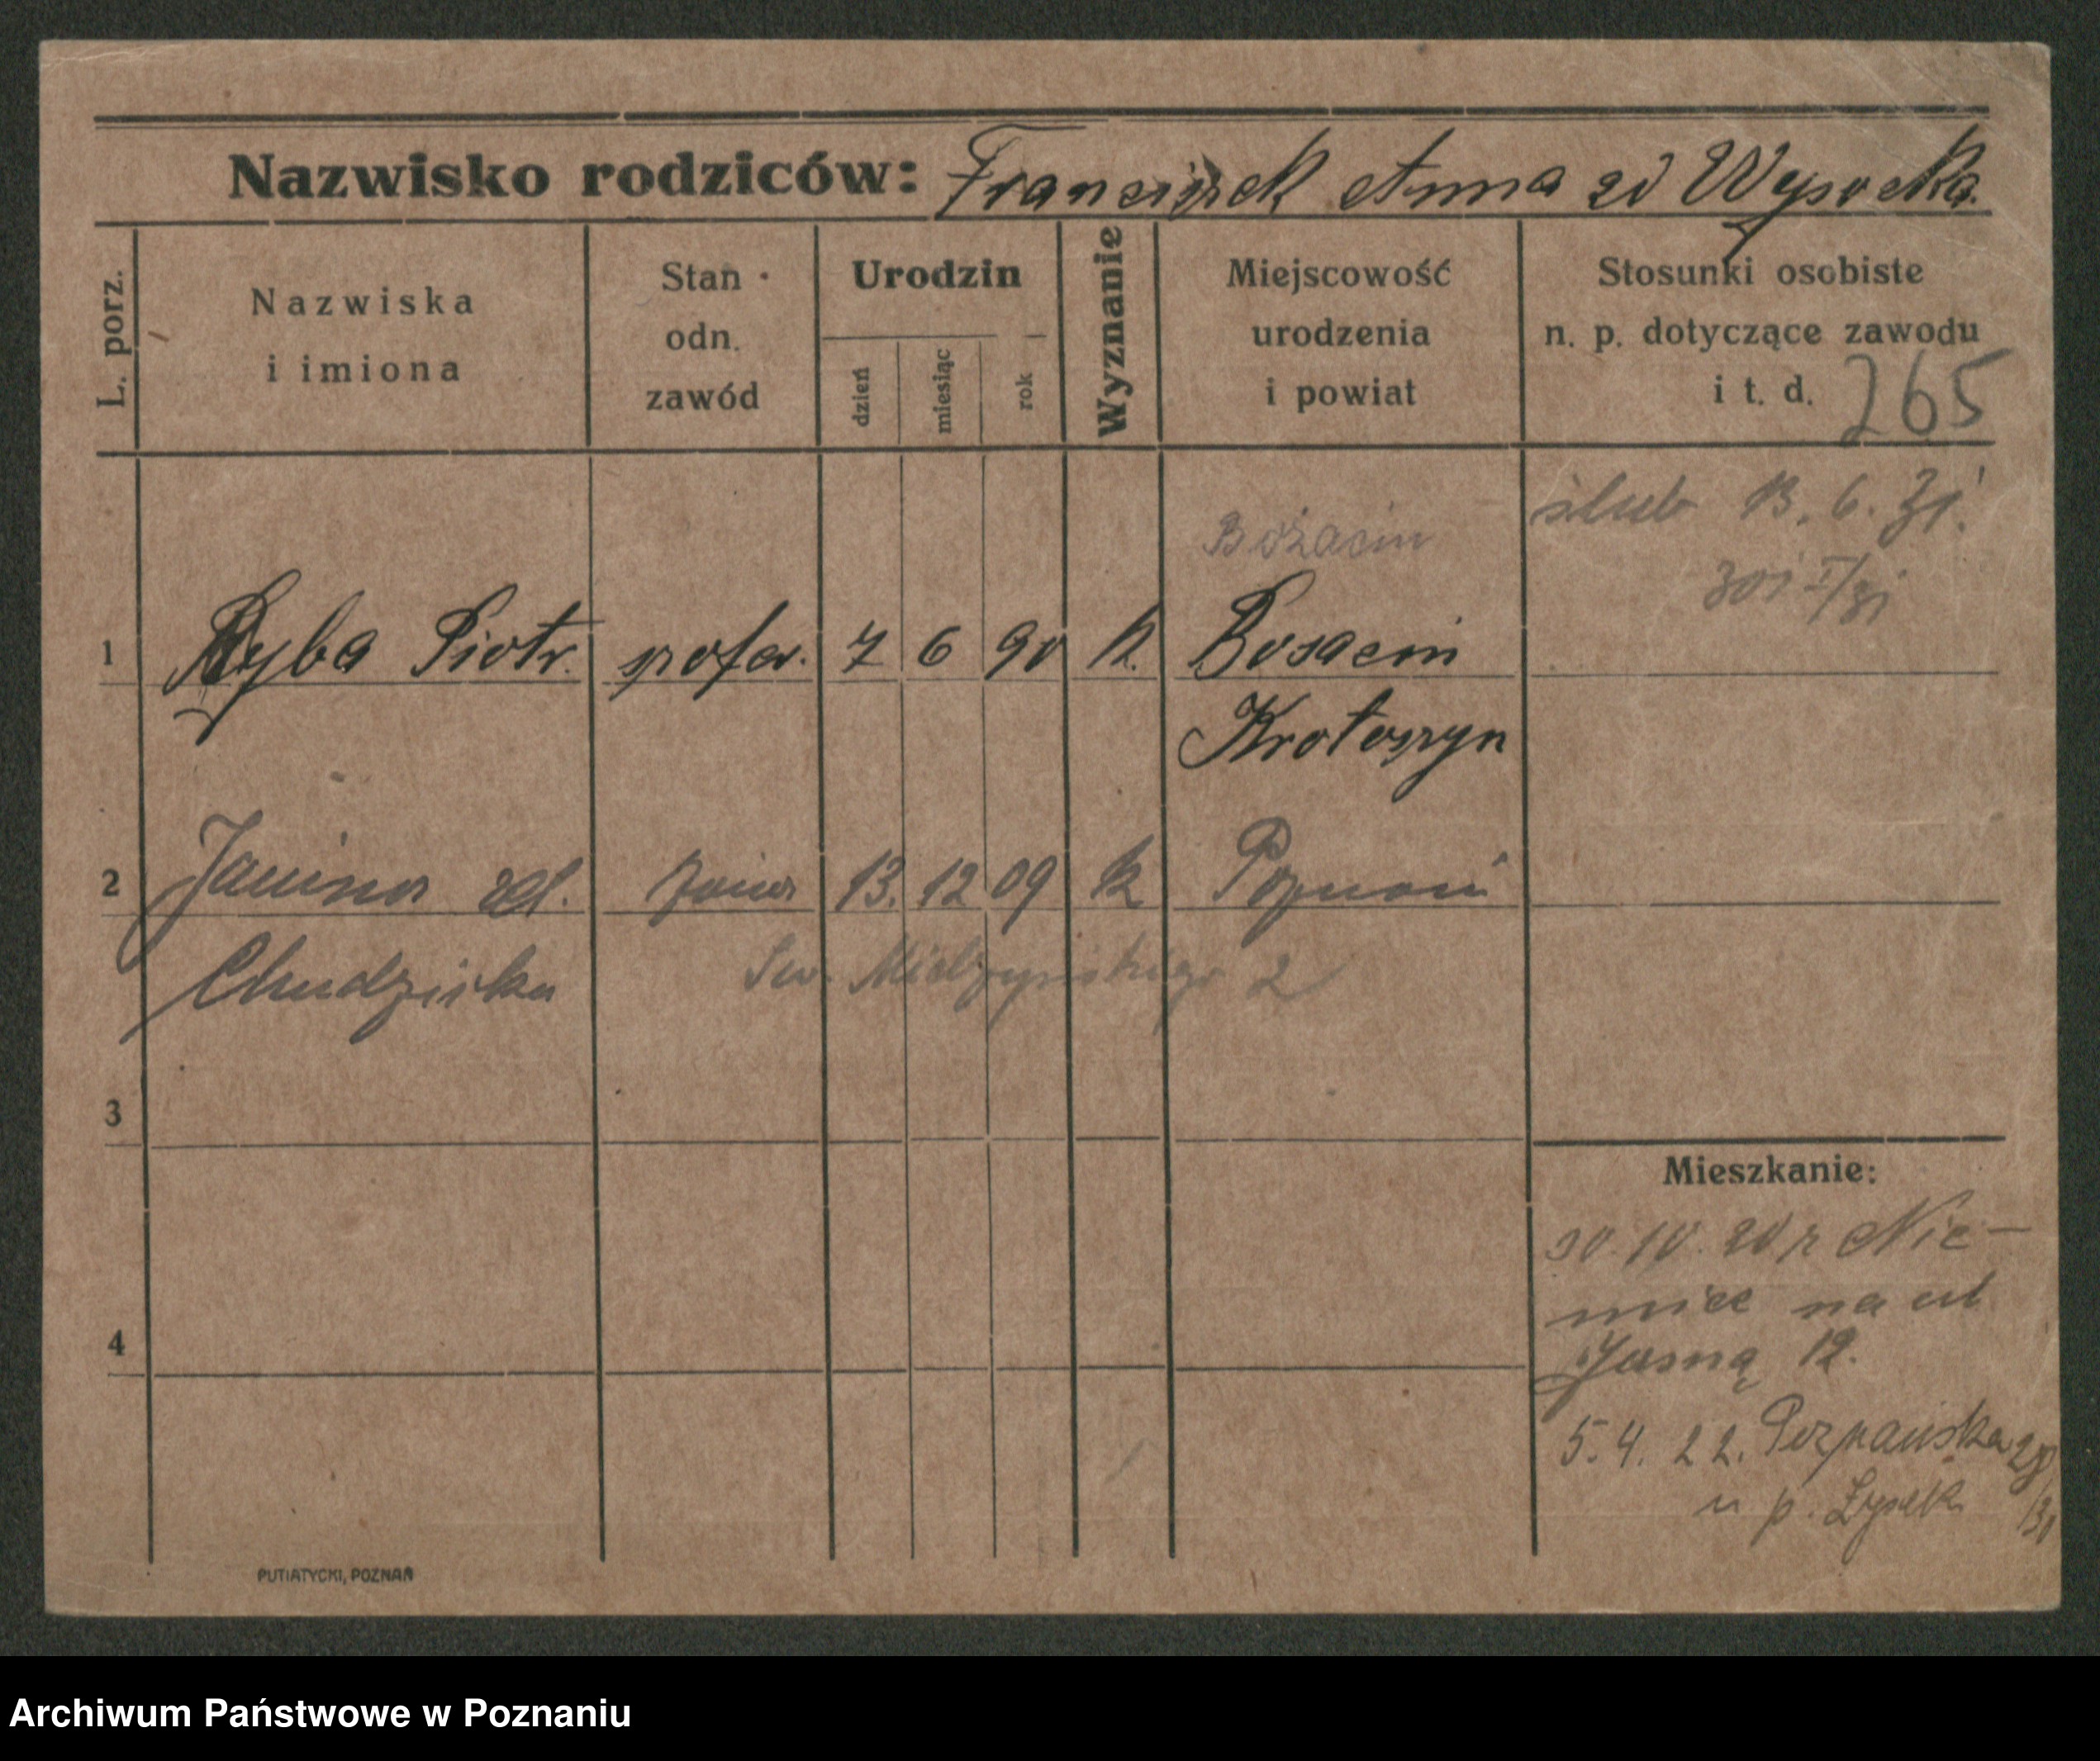 Nazwisko rodziców: Franciszek Anna zd Wysocka.
L. porz.
Nazwiska
i imiona
Stan
odn.
zawód
Urodzin
dzień
miesiąc
rok
Wyznanie
Miejscowość
urodzenia
i powiat
Stosunki osobiste
n. p. dotyczące zawodu
i t. d.
265
ślub 13. 6. 31.
Bożacin
1 Ryba Piotr. 7 6 90 k. Bosacin
Krotoszyn
2 Janina zd. żona 13. 12 09 k Poznań
Chudzicka
Sew. Mielżyńskiego 2
3
4
Mieszkanie:
30.10.20 r Nie-
miec na ul
Jasną 12.
5. 4. 22. Poznańska 28
u p.
PUTIATYCKI, POZNAŃ
Archiwum Państwowe w Poznaniu